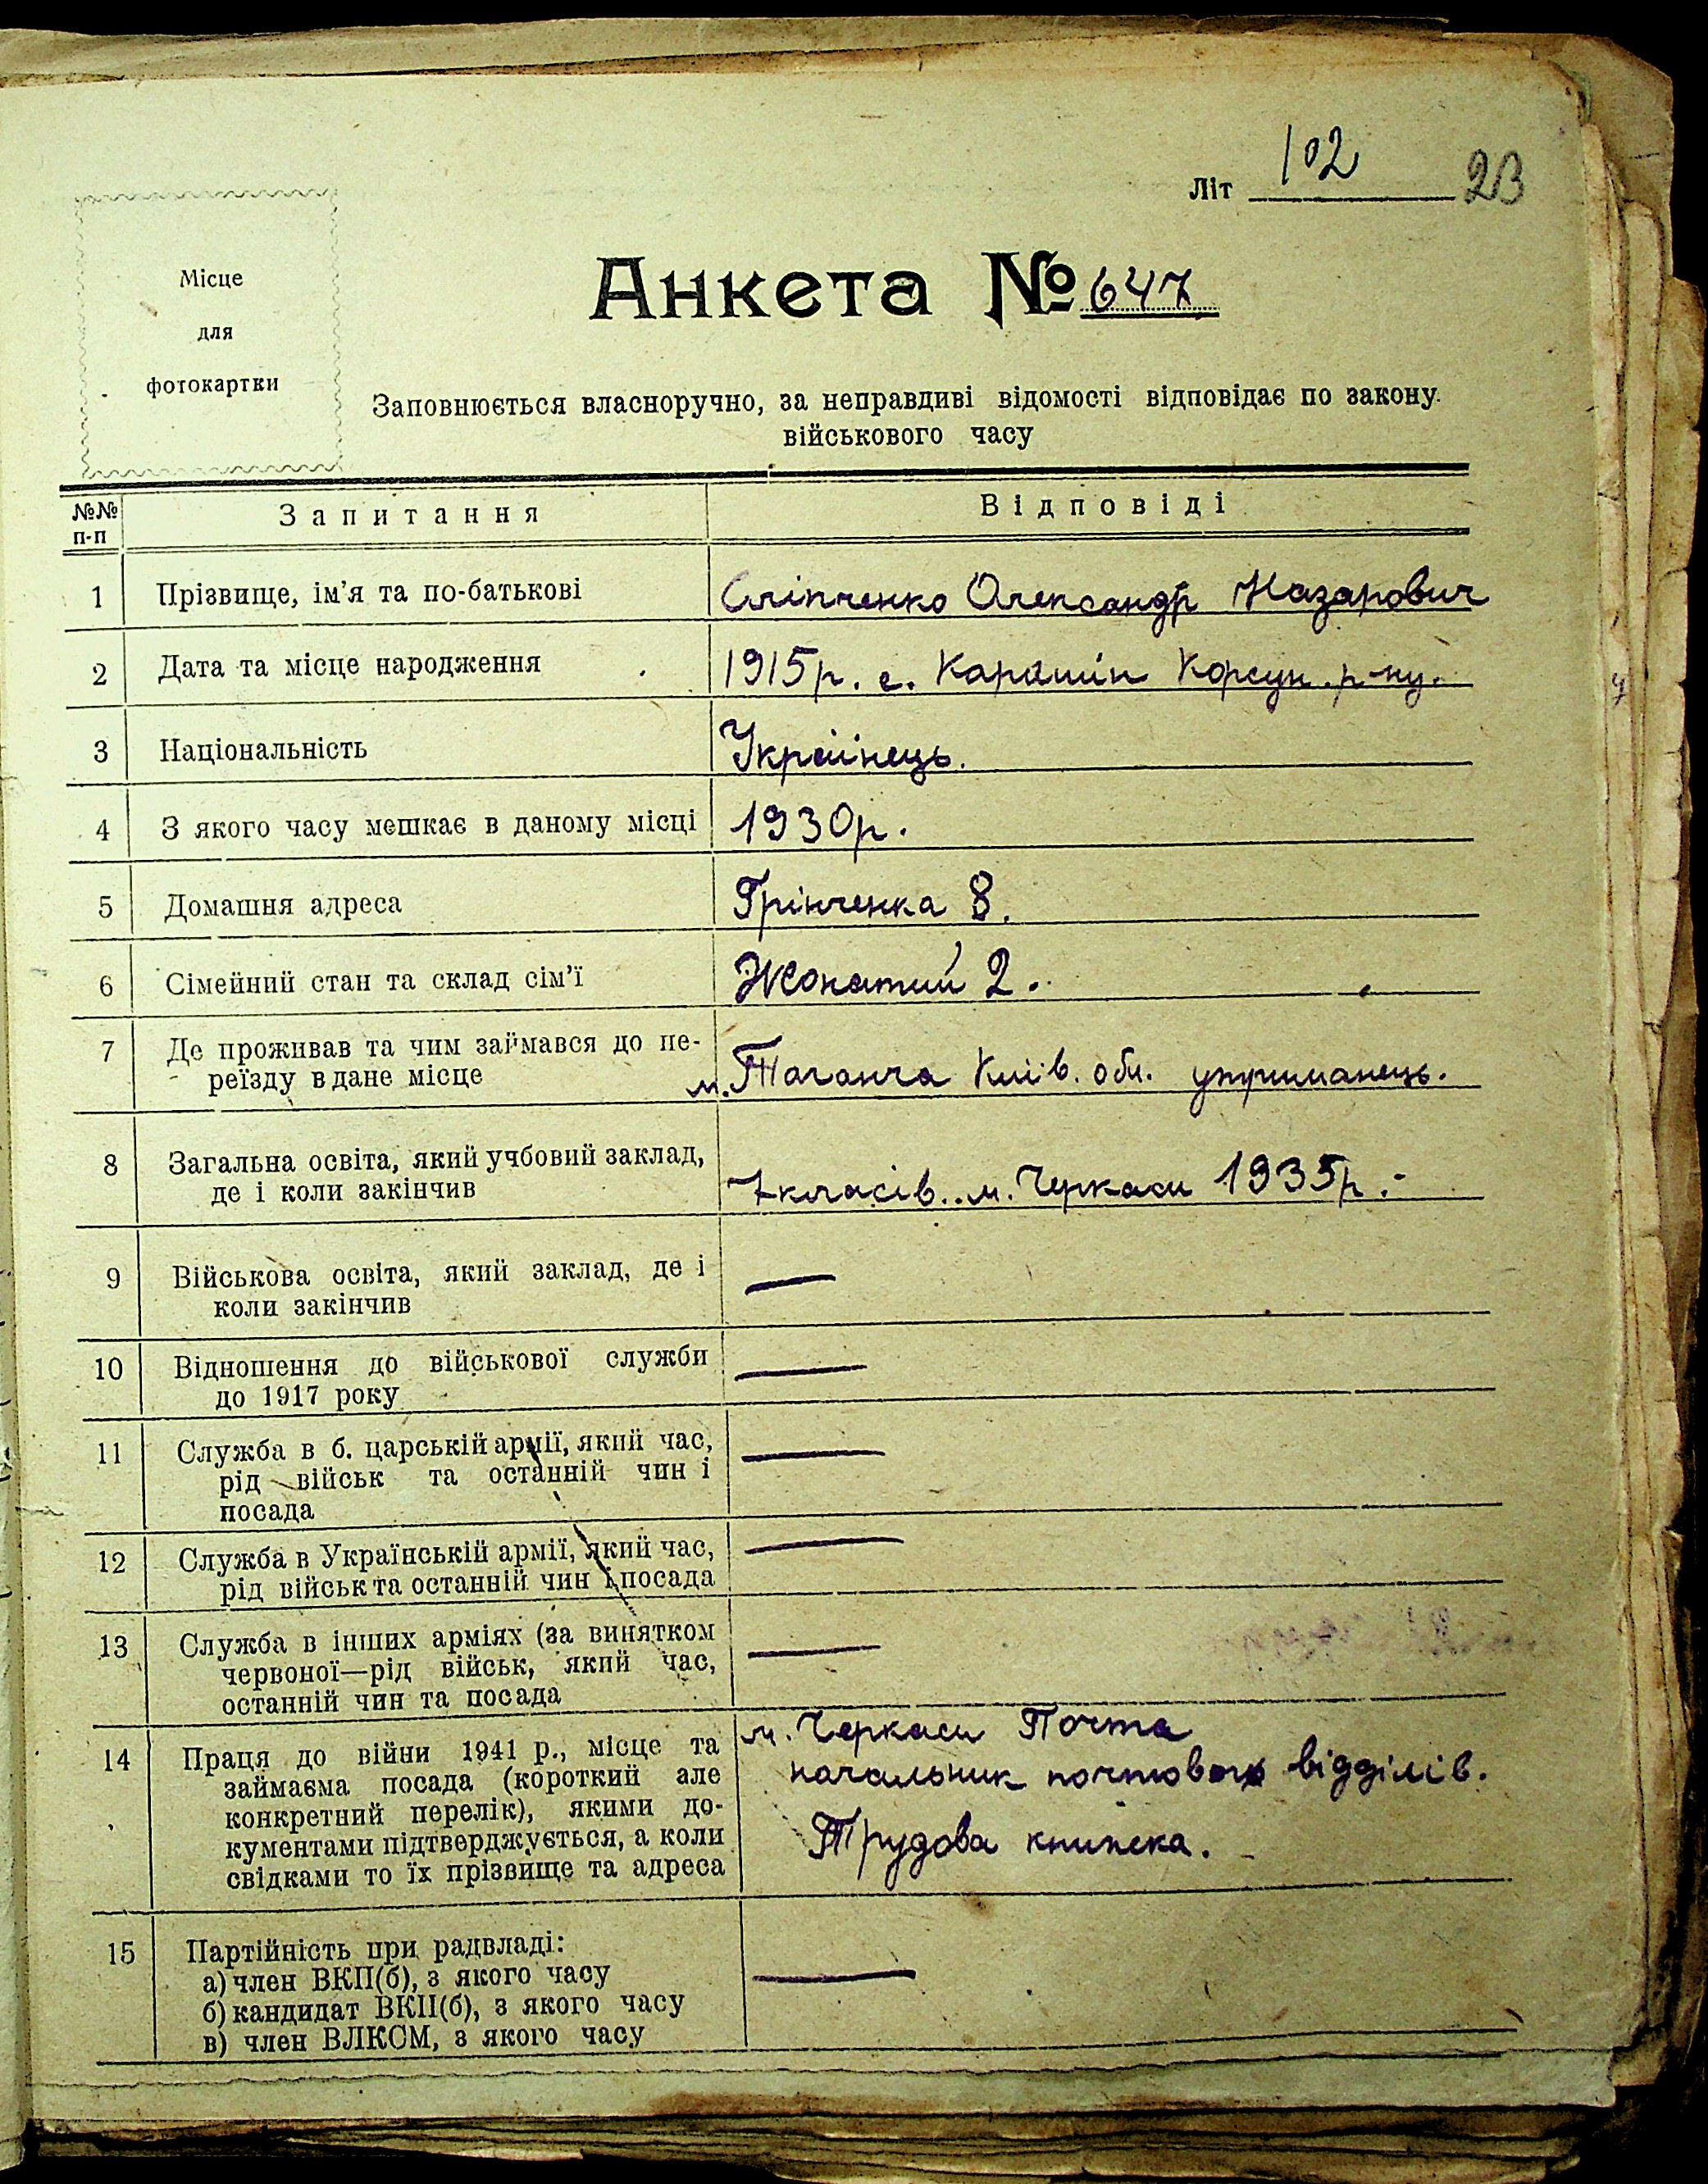 Літ 102 23
Місце
для
фотокартки
Анкета № 647
Заповнюється власноручно, за неправдиві відомості відповідає по закону
військового часу
№№ п-п Запитання Відповіді
1 Прізвище, ім'я та по-батькові Сліпченко Олександр Назарович
2 Дата та місце народження 1915р. с. Карашин Корсун. р-ну.
3 Національність Українець.
4 З якого часу мешкає в даному місці 1930р.
5 Домашня адреса Грінченка 8.
6 Сімейний стан та склад сім'ї Жонатий 2.
7 Де проживав та чим займався до пе-
реїзду в дане місце м. Таганча Київ. обл. утриманець.
8 Загальна освіта, який учбовий заклад,
де і коли закінчив 7 класів.. м. Черкаси 1935р.-
9 Військова освіта, який заклад, де і —
коли закінчив
10 Відношення до військової служби —
до 1917 року
11 Служба в б. царській армії, який час, —
рід військ та останній чин і
посада
12 Служба в Українській армії, який час, —
рід військ та останній чин і посада
13 Служба в інших арміях (за винятком —
червоної—рід військ, який час,
останній чин та посада
14 Праця до війни 1941 р., місце та м. Черкаси Почта
займаєма посада (короткий але начальник відділів.
конкретний перелік), якими до-
кументами підтверджується, а коли Трудова книжка.
свідками то їх прізвище та адреса
15 Партійність при радвладі:
а) член ВКП(б), з якого часу —
б) кандидат ВКП(б), з якого часу
в) член ВЛКСМ, з якого часу